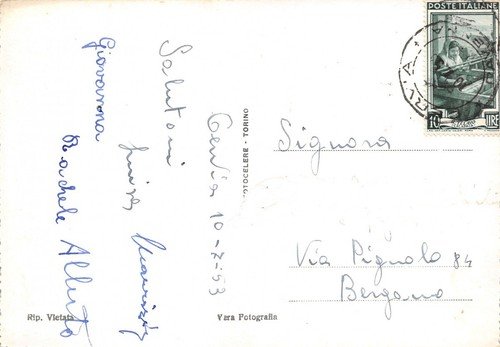 POSTE ITALIANE
10 LIRE
Cervia 10-7-53
Salutoni
Giovanna
Rachele Alberto
FOTOCELERE - TORINO
Signora
Via Pignolo 84
Bergamo
Rip. Vietata
Vera Fotografia